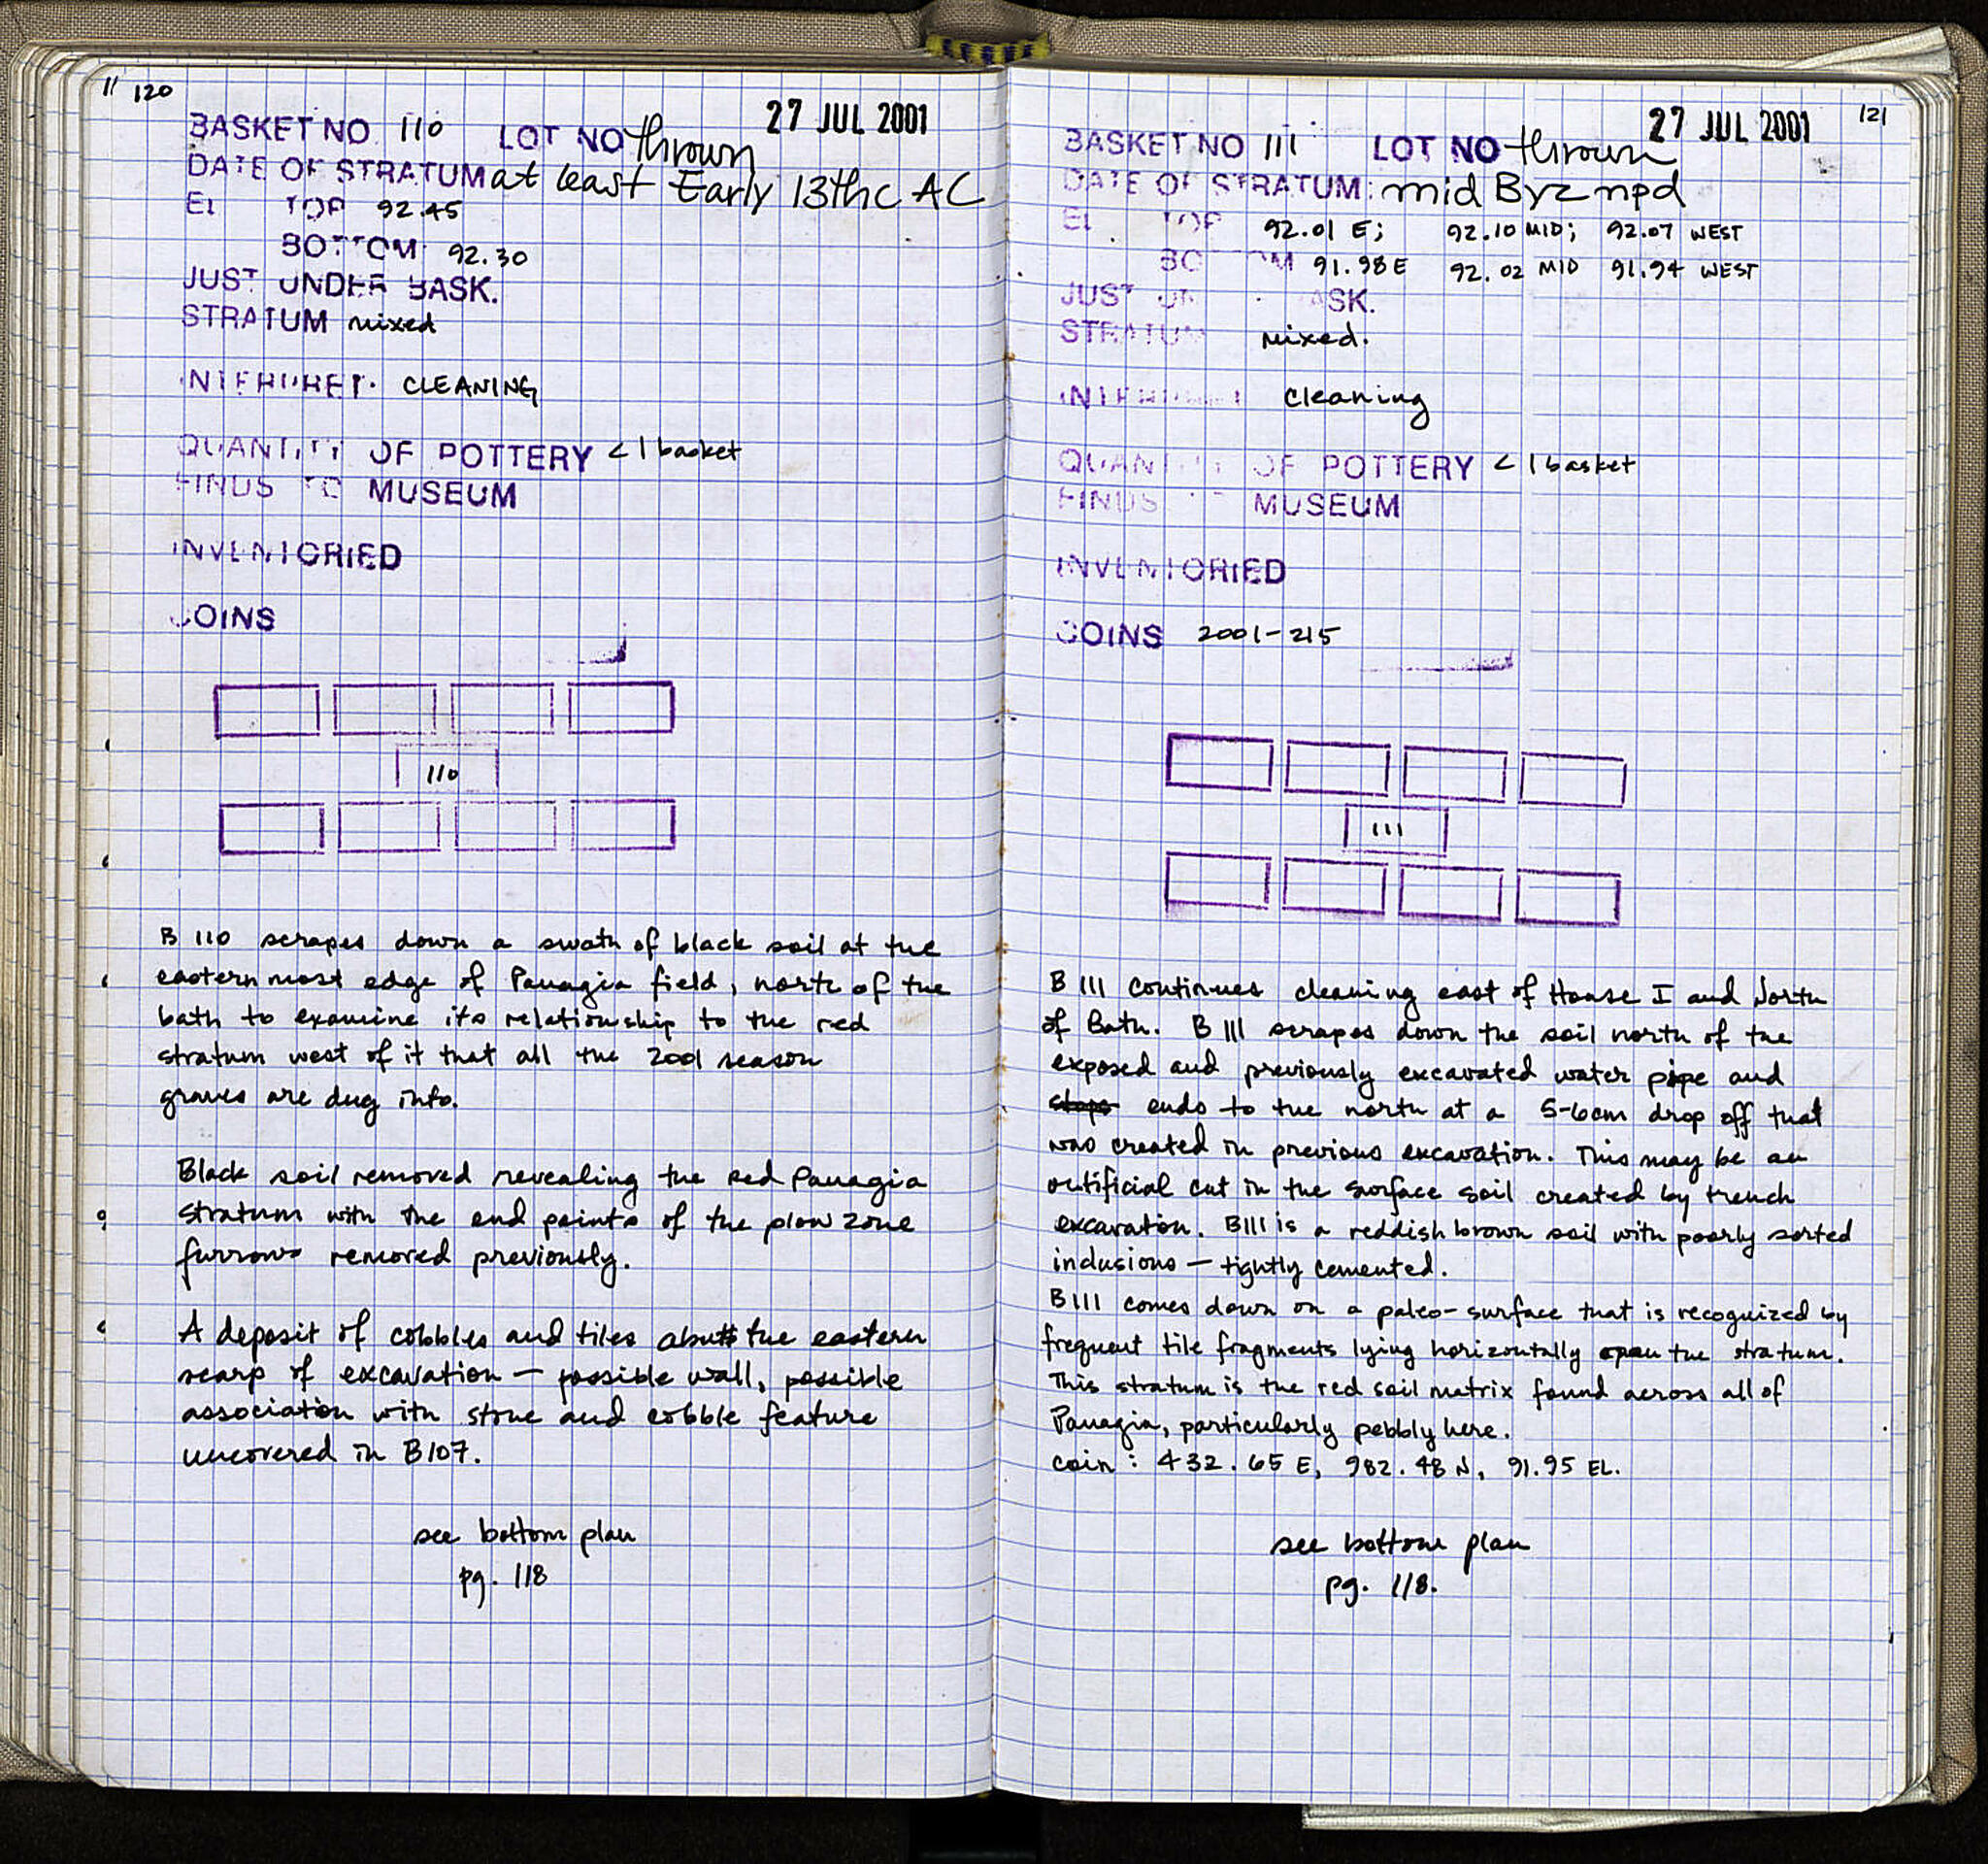 120
27 JUL 2001
BASKET NO. 110 LOT NO thrown
DATE OF STRATUM at least Early 13thc AC
EL TOP 92.45
BOTTOM: 92.30
JUST UNDER BASK.
STRATUM mixed
INTERPRET. CLEANING
QUANTITY OF POTTERY < 1 basket
FINDS TO MUSEUM
INVENTORIED
COINS
110
B 110 scrapes down a swath of black soil at the
eastern most edge of Panagia field, north of the
bath to examine its relationship to the red
stratum west of it that all the 2001 season
graves are dug into.
Black soil removed revealing the red Panagia
stratum with the end points of the plow zone
furrows removed previously.
A deposit of cobbles and tiles abutts the eastern
scarp of excavation — possible wall, possible
association with stone and cobble feature
uncovered in B107.
see bottom plan
pg. 118
27 JUL 2001 121
BASKET NO 111 LOT NO thrown
DATE OF STRATUM: mid Byz npd
EL TOP 92.01 E; 92.10 MID; 92.07 WEST
BOTTOM 91.98 E 92.02 MID 91.94 WEST
JUST UN BASK.
STRATUM mixed.
INTERPRET cleaning
QUANTITY OF POTTERY < 1 basket
FINDS TO MUSEUM
INVENTORIED
COINS 2001-215
111
B 111 continues cleaning east of House I and North
of Bath. B 111 scrapes down the soil north of the
exposed and previously excavated water pipe and
stops ends to the north at a 5-6cm drop off that
was created in previous excavation. This may be an
artificial cut in the surface soil created by trench
excavation. B111 is a reddish brown soil with poorly sorted
inclusions — tightly cemented.
B111 comes down on a paleo-surface that is recognized by
frequent tile fragments lying horizontally upon the stratum.
This stratum is the red soil matrix found across all of
Panagia, particularly pebbly here.
coin: 432.65 E, 982.48 N, 91.95 EL.
see bottom plan
pg. 118.